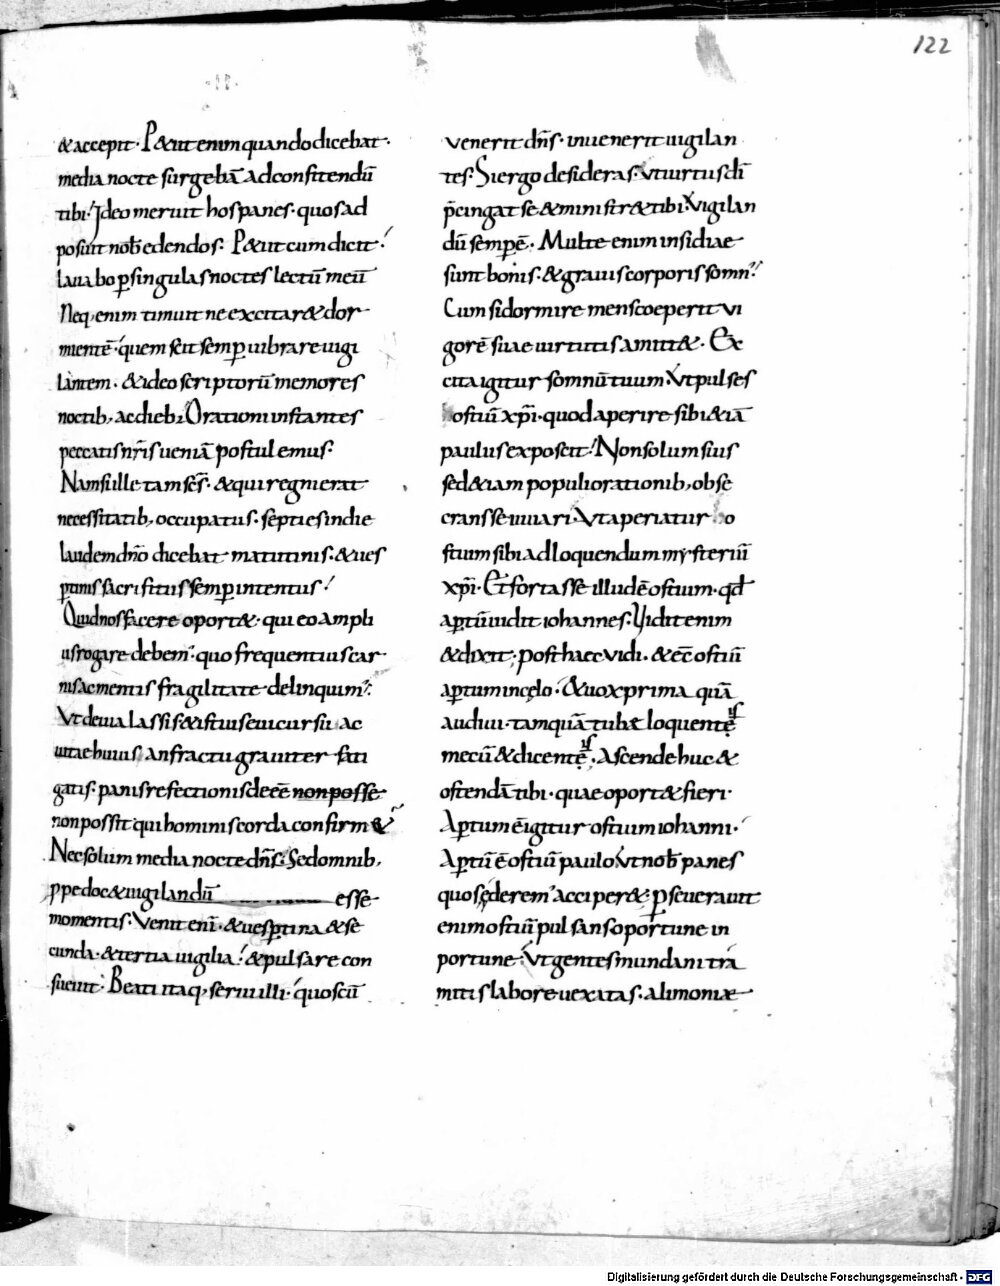 122
&accepit· P&iit enim quando dicebat·
media nocte surgebā ad confitendū
tibi· Ideo meruit hos panes· quos ad
posuit nob̄ edendos· P&iit cum dicit·
lauabo p̱ singulas noctes lectū meū
Neq; enim timuit ne excitar& dor
mientē· quem scit semp̱ uibrare uigi
lantem· &ideo scriptorū memores
noctib; ac dieb; Orationi instantes
peccatis nr̄is ueniā postulemus·
Nam si ille tam sc̄s· &qui regni erat
necessitatib; occupatus· septies in die
laudem dn̄o dicebat matutinis· &ues
p̱tinis sacrificiis semp̱ intentus!
Quid nos facere oport&· qui eo ampli
us rogare debem'· quo frequentius car
nis ac mentis fragilitate delinquim'·
Ut de uia lassis &istius seui cursu ac
uitae huius anfractu grauiter fati
gatis· panis refectionis deēē non posse
non possit qui hominis corda confirm&
Nec solum media nocte dn̄s· Sed omnib;
ppe doc& uigilandū esse
momentis· Venit eni· &uesp̱tina &se
cunda· &tertia uigilia! &pulsare con
sueuit· Beati itaq; serui illi· quos cū
venerit dn̄s· inuenerit uigilan
tes· Si ergo desideras· ut uirtus dī
p̄cingat se &ministr& tibi· Vigilan
dū semp̱ ē· Multe enim insidiae
sunt bonis· &grauis corporis somn'·
Cum si dormire mens coeperit vi
gorē suae uirtutis amitt&· Ex
cita igitur somnū tuum· Ut pulses
ostiū xp̄i· quod aperire sibi &iā
paulus exposcit! Non solum suis
sed &iam populi orationib; obse
crans se iuuari· Ut aperiatur o
stium sibi ad loquendum mysteriū
xp̄i· Et fortasse illud ē ostium· qd̄
ap̱tū uidit iohannes· Vidit enim
&dixit; post haec vidi· &ecē ostiū
ap̱tum in cęlo· &uox prima quā
audiui· tamquā tubae loquentē is
mecū &dicentē is· Ascende huc &
ostendā tibi· quae oport& fieri·
Ap̱tum ē igitur ostium iohanni·
Ap̱tū ē ostiū paulo ut nob̄ panes
quos ęderem' acciper&· p̱seuerauit
enim ostiū pulsans oportune in
portune· Ut gentes mundani trā
mitis labore uexatas· alimoniae
Digitalisierung gefördert durch die Deutsche Forschungsgemeinschaft - DFG